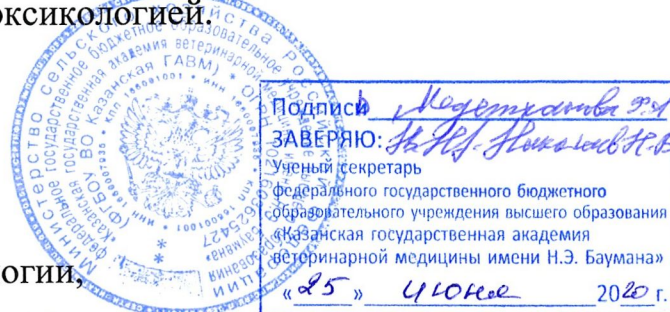 оксикологией.
Подписи Медетханова Ф.А
ЗАВЕРЯЮ:
Ученый секретарь
федерального государственного бюджетного
образовательного учреждения высшего образования
«Казанская государственная академия
ветеринарной медицины имени Н.Э. Баумана»
«25» июня 2020 г.
огии,
Министерство сельского хозяйства
федеральное государственное бюджетное образовательное
Казанская государственная академия ветеринарной
(ФГБОУ ВО Казанская ГАВМ)